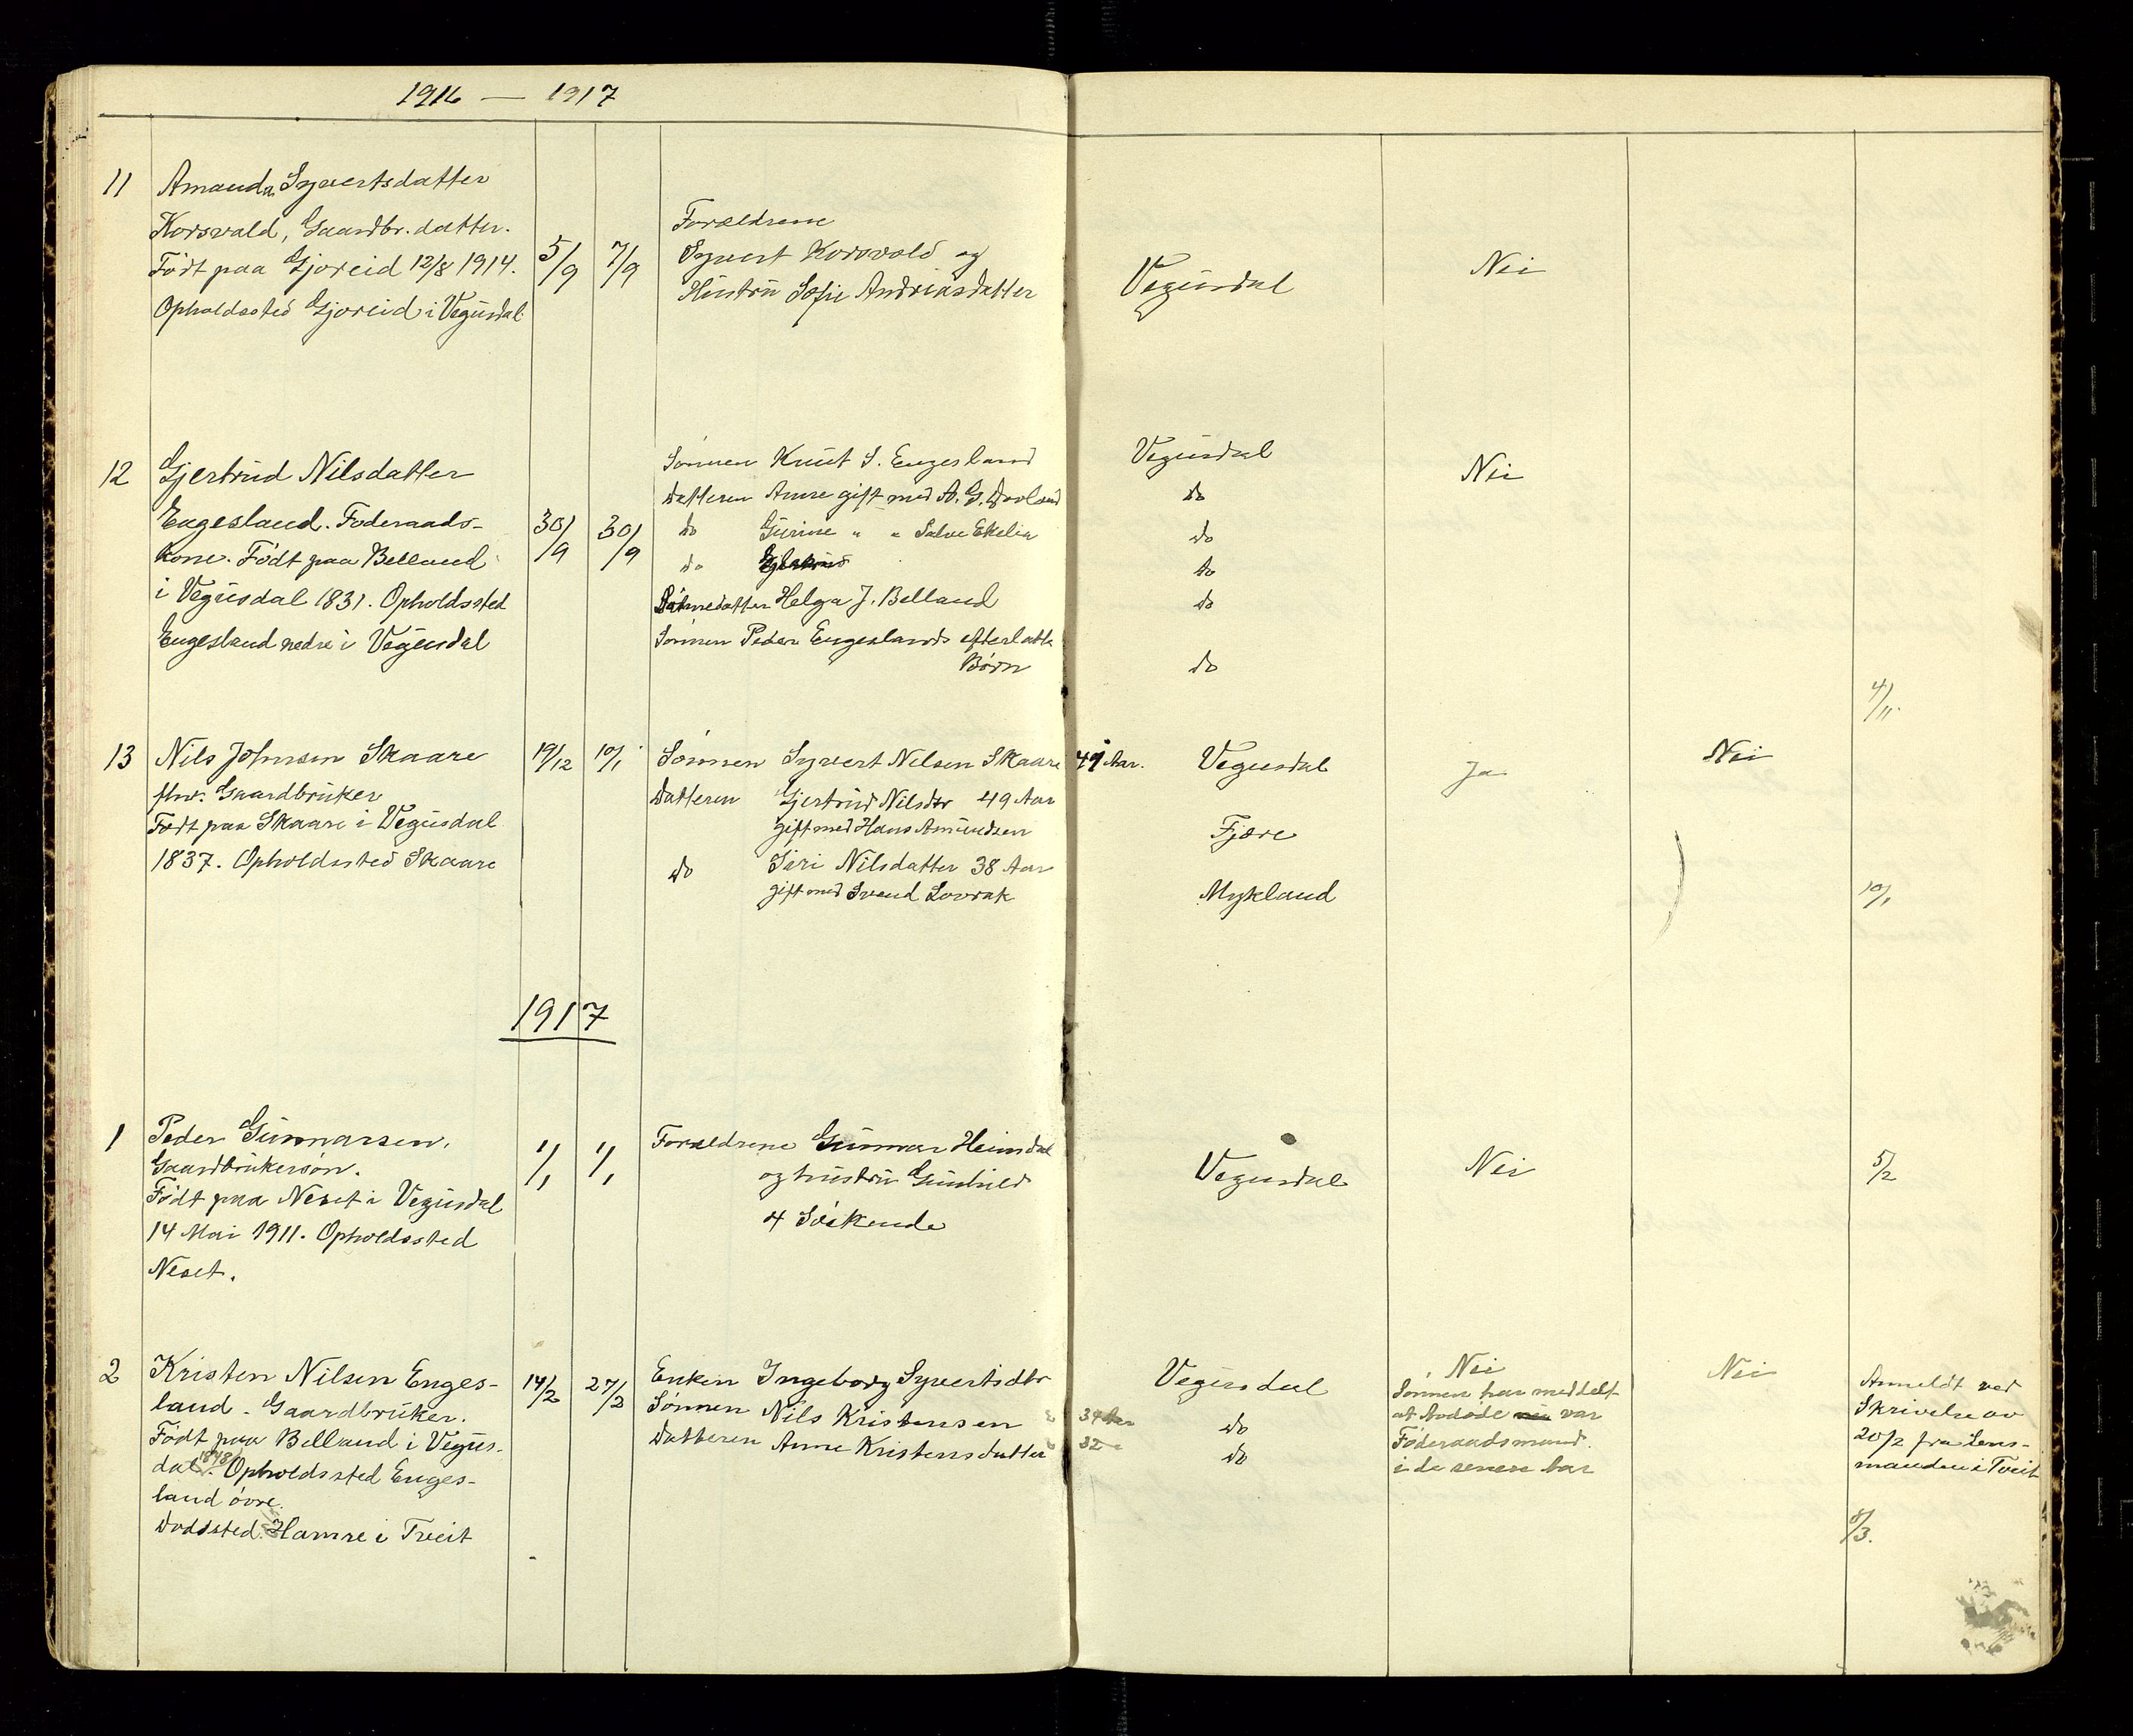 1916 — 1917
11 Amanda Syvertsdatter
Korsvald, Gaardbr. datter.
Født paa Gjoreid 12/8 1914.
Opholdssted Gjoreid i Vegusdal
5/9 7/9
Forældrene
Syvert Korsvald og
Hustru Sofie Andreasdatter
Vegusdal
Nei
12 Gjertrud Nilsdatter
Engesland. Føderaads-
kone. Født paa Belland
i Vegusdal 1831. Opholdssted
Engesland nedre i Vegusdal
30/9 30/9
Sønnen Knut S. Engesland Vegusdal
Datteren Anne gift med A. G. Dovland do
do Gurine " " Salve Ekelia do
do do
Datterdatter Helga J. Belland do
Sønnen Peder Engeslands efterlatte
Børn do
Nei
4/11.
13 Nils Johnsen Skaare
fhv. Gaardbruker
Født paa Skaare i Vegusdal
1837. Opholdssted Skaare
19/12 10/1
Sønnen Syvert Nilsen Skaare 41 Aar. Vegusdal
Datteren Gjertrud Nilsdtr 49 Aar
gift med Hans Amundsen Fjære
do Siri Nilsdatter 38 Aar
gift med Svend Lovrak Mykland
Ja
Nei
10/1
1917
1 Peder Gunnarsen,
Gaardbrukersøn.
Født paa Neset i Vegusdal
14 Mai 1911. Opholdssted
Neset.
1/1 1/1
Forældrene Gunnar Heimdal
og hustru Gunhild
4 Søskende
Vegusdal
Nei
5/2
2 Kristen Nilsen Enges-
land. Gaardbruker.
Født paa Belland i Vegus-
dal 1848. Opholdssted Enges-
land øvre.
Dødssted Hamre i Tveit
14/2 27/2
Enken Ingeborg Syvertsdtr Vegusdal
Sønnen Nils Kristensen 34 Aar do
Datteren Anne Kristensdatter 32 " do
Nei
Sønnen har meddelt
at Avdøde var
Føderaadsmand
i de senere aar
Nei
Anmeldt ved
Skrivelse av
20/2 fra Lens-
manden i Tveit
8/3.